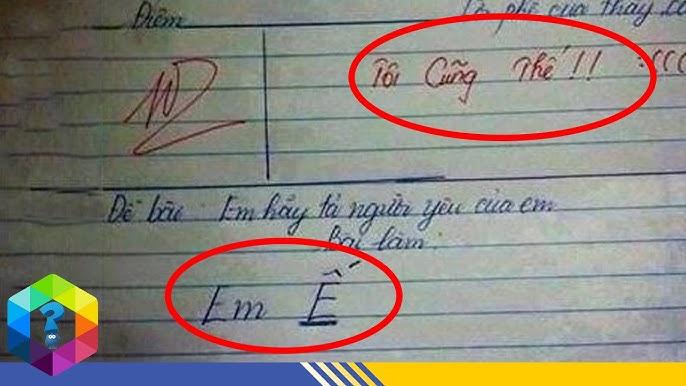 Điểm
Lời phê của thầy cô
10
Tôi Cũng Thế !! :(((
Đề bài: Em hãy tả người yêu của em
Bài làm:
Em Ế